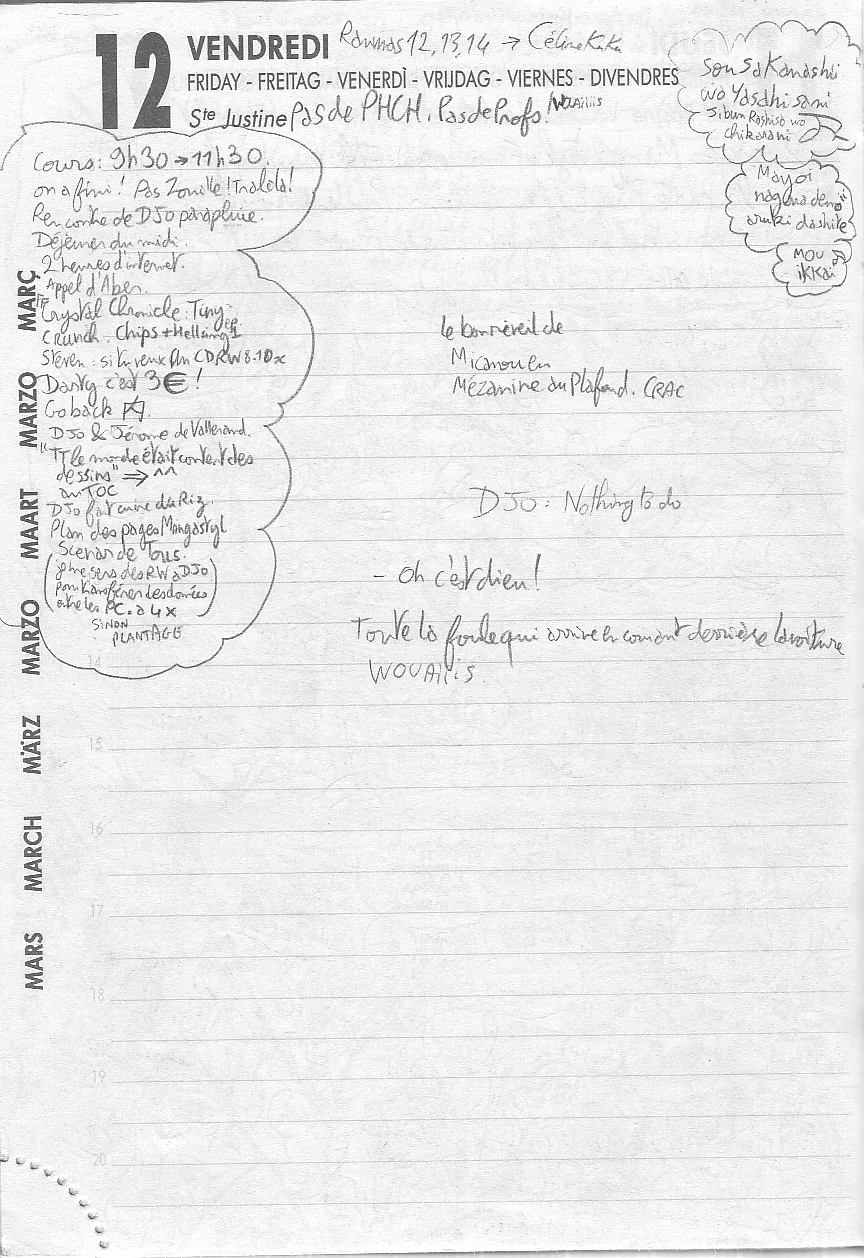 12
VENDREDI
Ranmas 12,13,14 → Céline Kaku
FRIDAY - FREITAG - VENERDÌ - VRIJDAG - VIERNES - DIVENDRES
Ste Justine
Pas de PHCH. Pas de Profs! Wouaiiis
sou sa Kanashii
wo Yasashisani
Jibun Rashisa wo
chikarani
Mayoi
nagara demo
aruki dashite
MOU
ikkai
Cours: 9h30 → 11h30.
on a fini! Pas Zouille! Tralala!
Rencontre de DJo parapluie.
Déjeuner du midi.
2 heures d'internet.
Appel d'Aben.
FF Crystal Chronicle: Tiny
Crunch. Chips + Hellsing ep 1
Steven: si tu veux un CDRW 8-10x
Darty c'est 3€!
Go back
DJo & Jérome de Vallerand.
"TT le monde était content des
dessins" ⇒ ^^
au TOC
DJo fait cuire du Riz.
Plan des pages Mangastyl
Scenar de Tous.
(je me sers des RW à DJo
pour transférer les données
entre les PC. à 4x
SINON
PLANTAGE
le bon réveil de
Mezanine au Plafond. CRAC
DJO: Nothing to do
- Oh c'est dieu!
Toute la foule qui arrive en courant derrière la voiture
WOUAiiis.
14
15
16
17
18
19
20
MARS MARCH MÄRZ MARZO MAART MARZO MARÇ